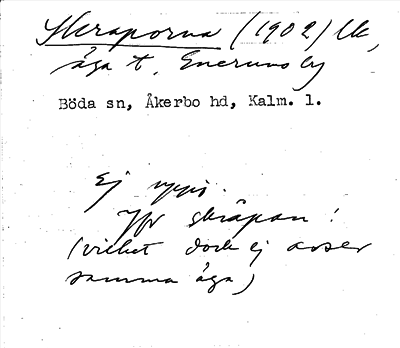 Skraporna (1902) lk,
äga t. Enerums by
Böda sn, Åkerbo hd, Kalm. l.
Ej uppg.
Jfr skråpan!
(vilket dock ej avser
samma äga)